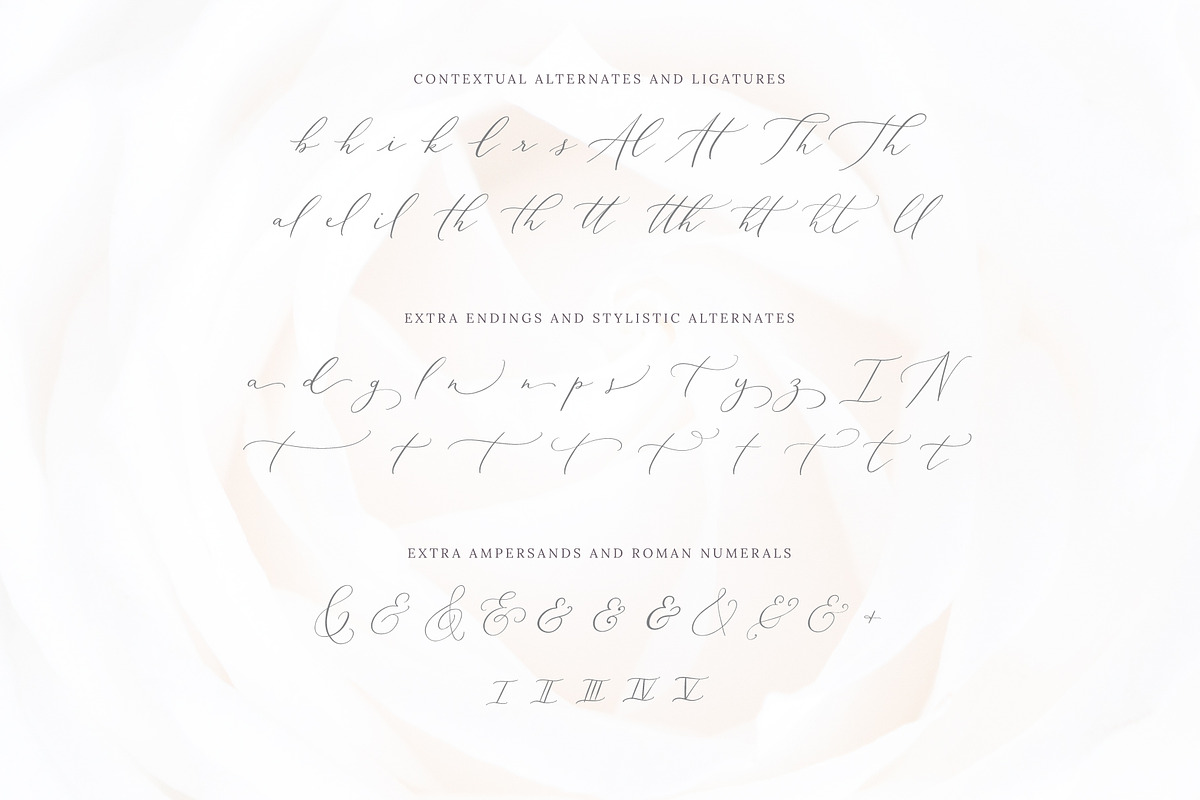 CONTEXTUAL ALTERNATES AND LIGATURES
b h i k l r s Al At Th Th
al el il th th tt tth ht ht ll
EXTRA ENDINGS AND STYLISTIC ALTERNATES
a d g l n n p s T y z I N
t t t t t t t t t
EXTRA AMPERSANDS AND ROMAN NUMERALS
& & & & & & & & & & +
I II III IV V